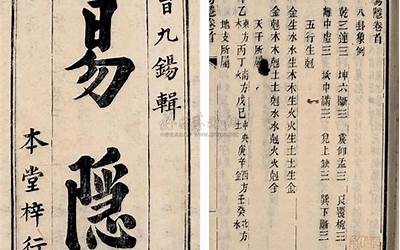 曹九錫輯
易隱
本堂梓行
易隱卷首
八卦象例
乾三連☰ 坤六斷☷ 震仰盂☳ 艮覆椀☶
離中虛☲ 坎中滿☵ 兌上缺☱ 巽下斷☴
五行生剋
金生水水生木木生火火生土土生金
金剋木木剋土土剋水水剋火火剋金
天干所屬
甲乙東方木丙丁南方火戊己中央土庚辛西方金壬癸北方水
地支所屬